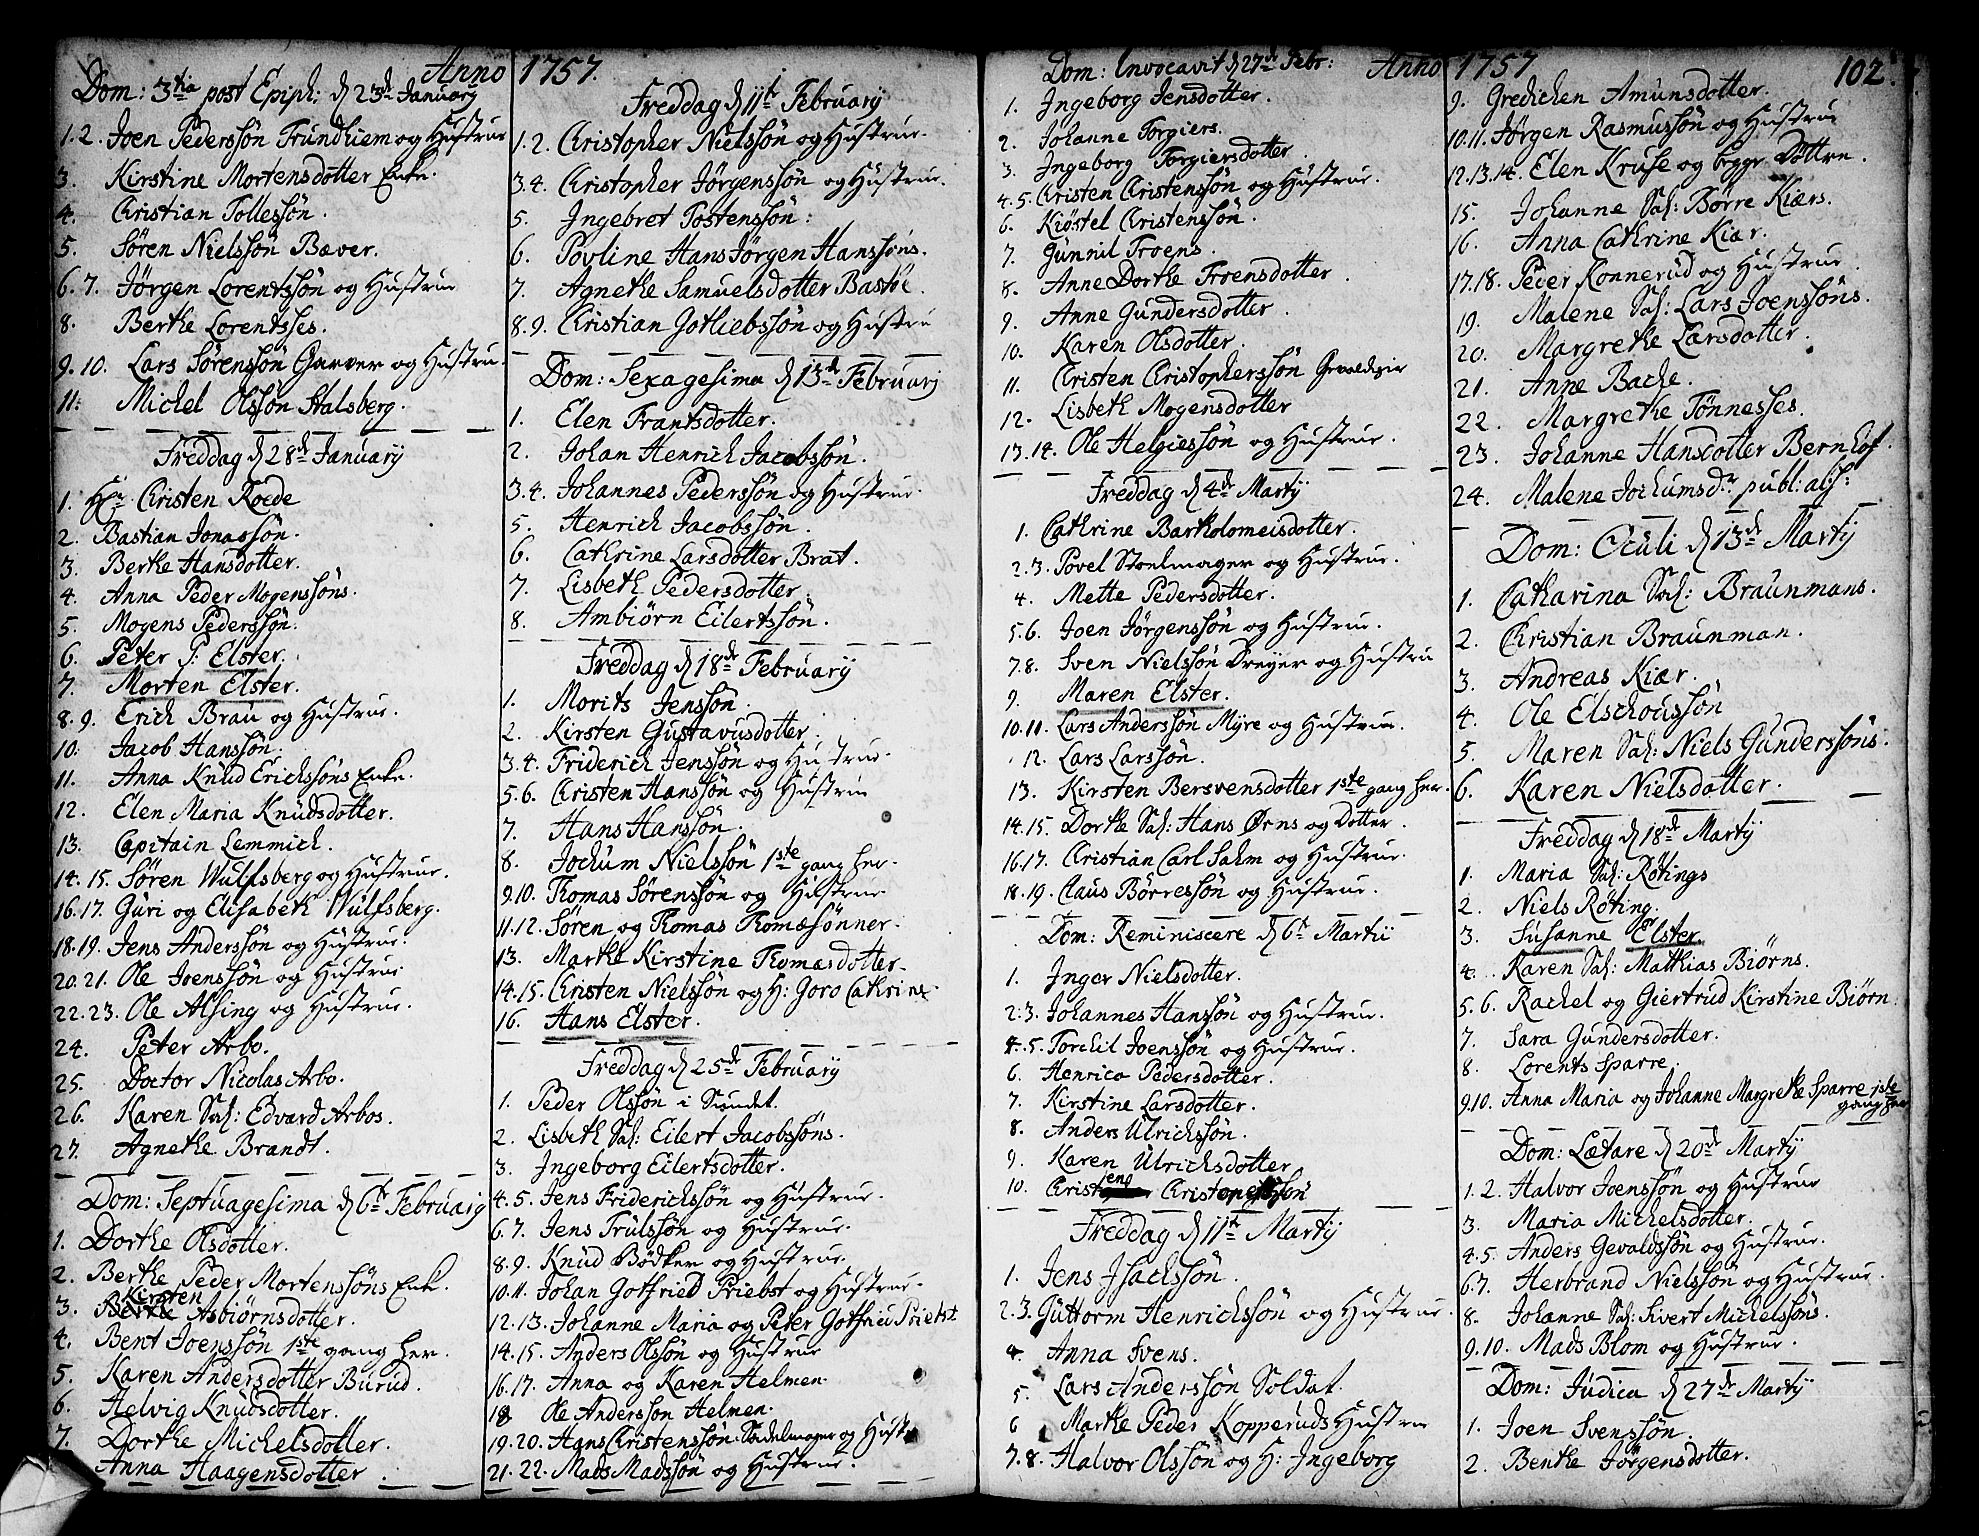 Anno 1757.
Dom: 3tia post Epiph: d 23de January
1.2. Joen Pederssøn Trundhiem og Hustrue
3. Kirstine Mortensdotter Enke.
4. Christian Tollessøn.
5. Søren Nielssøn Bæver.
6.7. Jørgen Lorentssøn og Hustrue
8. Berthe Lorentsses.
9.10. Lars Sørenssøn Garver og Hustrue.
11. Michel Olssøn Stalsberg.
Freddag d 28de January
1. Hr: Christen Roede
2. Bastian Jonassøn.
3. Berthe Hansdotter.
4. Anna Peder Mogenssøns.
5. Mogens Pederssøn.
6. Peter P: Elster.
7. Morten Elster.
8.9. Erich Brau og Hustrue.
10. Jacob Hanssøn.
11. Anna Knud Erichssøns Enke.
12. Elen Maria Knudsdotter.
13. Capitain Lemmich.
14.15. Søren Wulfsberg og Hustrue.
16.17. Guri og Elisabeth Wulfsberg.
18.19. Jens Anderssøn og Hustrue.
20.21. Ole Joenssøn og Hustrue
22.23. Ole Alsing og Hustrue.
24. Peter Arbo.
25. Doctor Nicolas Arbo.
26. Karen Sal: Edvard Arbos.
27. Agnethe Brandt.
Dom: Septuagesima d 6te Februarij
1. Dorthe Olsdotter.
2. Berthe Peder Mortenssøns Enke.
3. Kirsten Asbiørnsdotter.
4. Bent Joenssøn 1ste gang her.
5. Karen Andersdotter Burud.
6. Helvig Knudsdotter.
7. Dorthe Michelsdotter.
Anna Haagensdotter.
Freddag d 11te February
1.2. Christopher Nielssøn og Hustrue.
3.4. Christopher Jørgenssøn og Hustrue.
5. Ingebret Tostenssøn:
6. Povline Hans Jørgen Hanssøns.
7. Agnethe Samuelsdotter Bastøe.
8.9. Christian Gotliebssøn og Hustru
Dom: Sexagesima d 13de Februarij
1. Elen Frantsdotter.
2. Johan Henrich Jacobssøn.
3.4. Johannes Pederssøn og Hustrue.
5. Henrich Jacobssøn.
6. Cathrine Larsdotter Brat.
7. Lisbeth Pedersdotter.
8. Ambiørn Eilertssøn.
Freddag d 18de February
1. Morits Jenssøn.
2. Kirsten Gustavusdotter.
3.4. Friderich Jenssøn og Hustrue.
5.6. Christen Hanssøn og Hustrue
7. Hans Hanssøn.
8. Jochum Nielssøn 1ste gang her.
9.10. Thomas Sørenssøn og Hustrue
11.12. Søren og Thomas Thomæsønner.
13. Marthe Kirstine Thomasdotter.
14.15. Christen Nielssøn og H: Goro Cathrine
16. Hans Elster.
Freddag d 25de February
1. Peder Olssøn i Sundet.
2. Lisbeth Sal: Eilert Jacobssøns.
3. Ingeborg Eilertsdotter.
4.5. Jens Friderichssøn og Hustrue.
6.7. Jens Trulssøn og Hustrue.
8.9. Knud Bødker og Hustrue.
10.11. Johan Gotfried Priebst og Hustrue.
12.13. Johanne Maria og Peter Gotfried Priebst
14.15. Anders Olssøn og Hustrue
16.17. Anna og Karen Helmen.
18 Ole Anderssøn Helmen.
19.20. Hans Christenssøn Sadelmager og Hust:
21.22. Mads Madssøn og Hustrue.
Anno 1757
102.
Dom: Invocavit d 27de Febr:
1. Ingeborg Jensdotter.
2. Johanne Torgiers.
3. Ingeborg Torgiersdotter
4.5. Christen Christenssøn og Hustrue.
6. Kiøstel Christenssøn.
7. Gunnil Troens.
8. Anne Dorthe Troensdotter.
9. Anne Gundersdotter.
10. Karen Olsdotter.
11. Christen Christopherssøn Gevaldiger
12. Lisbeth Mogensdotter
13.14. Ole Helgiessøn og Hustrue.
Freddag d 4de Martij
1. Cathrine Bartholomeisdotter.
2.3. Povel Stoelmager og Hustrue.
4. Mette Pedersdotter.
5.6. Joen Jørgenssøn og Hustrue.
7.8. Sven Nielssøn Dreyer og Hustru
9. Maren Elster.
10.11. Lars Anderssøn Myre og Hustrue.
12. Lars Larssøn.
13. Kirsten Bersvensdotter 1ste gang her.
14.15. Dorthe Sal: Hans Ørns og Dotter.
16.17. Christian Carl Sahm og Hustrue.
18.19. Claus Børressøn og Hustrue.
Dom: Reminiscere d 6te Martii
1. Inger Nielsdotter.
2.3. Johannes Hanssøn og Hustrue.
4.5. Torchil Joenssøn og Hustrue.
6. Henrica Pedersdotter.
7. Kirstine Larsdotter.
8. Anders Ulrichssøn.
9. Karen Ulrichsdotter
10. Christens Christophessøn
Freddag d 11te Martij
1. Jens Jsachssøn.
2.3. Guttorm Henrichssøn og Hustrue.
4. Anna Svens.
5. Lars Anderssøn Soldat.
6 Marthe Peder Kopperuds Hustrue
7.8. Halvor Olssøn og H: Ingeborg
9. Gredichen Amunsdotter.
10.11. Jørgen Rasmussøn og Hustrue
12.13.14. Elen Kruse og begge Døttre.
15. Johanne Sal: Børre Kiærs.
16. Anna Cathrine Kiær.
17.18. Peder Konnerud og Hustrue
19. Malene Sal: Lars Joenssøns.
20. Margrethe Larsdotter.
21. Anne Bache.
22. Margrethe Tønnesses.
23. Johanne Hansdotter Bernhof.
24. Malene Jochumsdr publ: abs:
Dom: Oculi d 13de Martij
1. Catharina Sal: Braunmans.
2. Christian Braunman.
3. Andreas Kiær.
4. Ole Elschoussøn
5. Maren Sal: Niels Gunderssøns.
6. Karen Nielsdotter.
Freddag d 18de Martij
1. Maria Sal: Røtings
2. Niels Røting.
3. Susanne Elster.
4. Karen Sal: Mathias Biørns.
5.6. Rachel og Giertrud Kirstine Biørn.
7. Sara Gundersdotter.
8. Lorents Sparre.
9.10. Anna Maria og Johanne Margrethe Sparre 1ste
gang her
Dom: Lætare d 20de Martij
1.2. Halvor Joenssøn og Hustrue
3. Maria Michelsdotter.
4.5. Anders Gevaldssøn og Hustrue.
6.7. Herbrand Nielssøn og Hustrue.
8. Johanne Sal: Sivert Michelssøns.
9.10. Mads Blom og Hustrue.
Dom: Judica d 27de Martij
1. Joen Svenssøn.
2. Benthe Jørgensdotter.